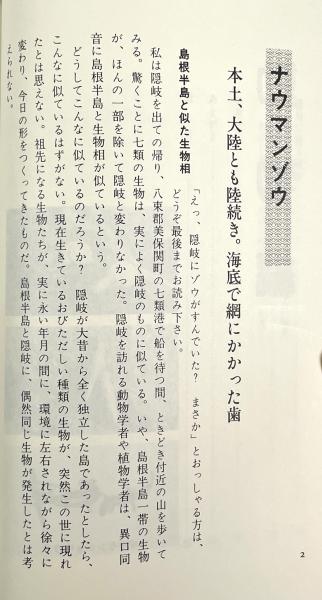 ナウマンゾウ
本土、大陸とも陸続き。海底で網にかかった歯
「えっ、隠岐にゾウがすんでいた？　まさか」とおっしゃる方は、
どうぞ最後までお読み下さい。
島根半島と似た生物相
私は隠岐を出ての帰り、八束郡美保関町の七類港で船を待つ間、ときどき付近の山を歩いて
みる。驚くことに七類の生物は、実によく隠岐のものに似ている。いや、島根半島一帯の生物
が、ほんの一部を除いて隠岐と変わりなかった。隠岐を訪れる動物学者や植物学者は、異口同
音に島根半島と生物相が似ているという。
どうしてこんなに似ているのだろうか？　隠岐が大昔から全く独立した島であったとしたら、
こんなに似ているはずがない。現在生きているおびただしい種類の生物が、突然この世に現れ
たとは思えない。祖先になる生物たちが、実に永い年月の間に、環境に左右されながら徐々に
変わり、今日の形をつくってきたものだ。島根半島と隠岐に、偶然同じ生物が発生したとは考
えられない。
2